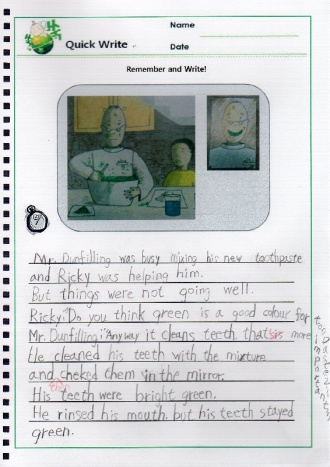 Quick Write
Name
Date
Remember and Write!
Mr. Dunfilling was busy mixing his new toothpaste
and Ricky was helping him.
But things were not going well.
Ricky:"Do you think green is a good colour for toothpaste?"
Mr. Dunfilling:"Anyway it cleans teeth, that is more important"
He cleaned his teeth with the mixture
and cheked them in the mirror.
His teeth were bright green.
He rinsed his mouth but his teeth stayed
green.